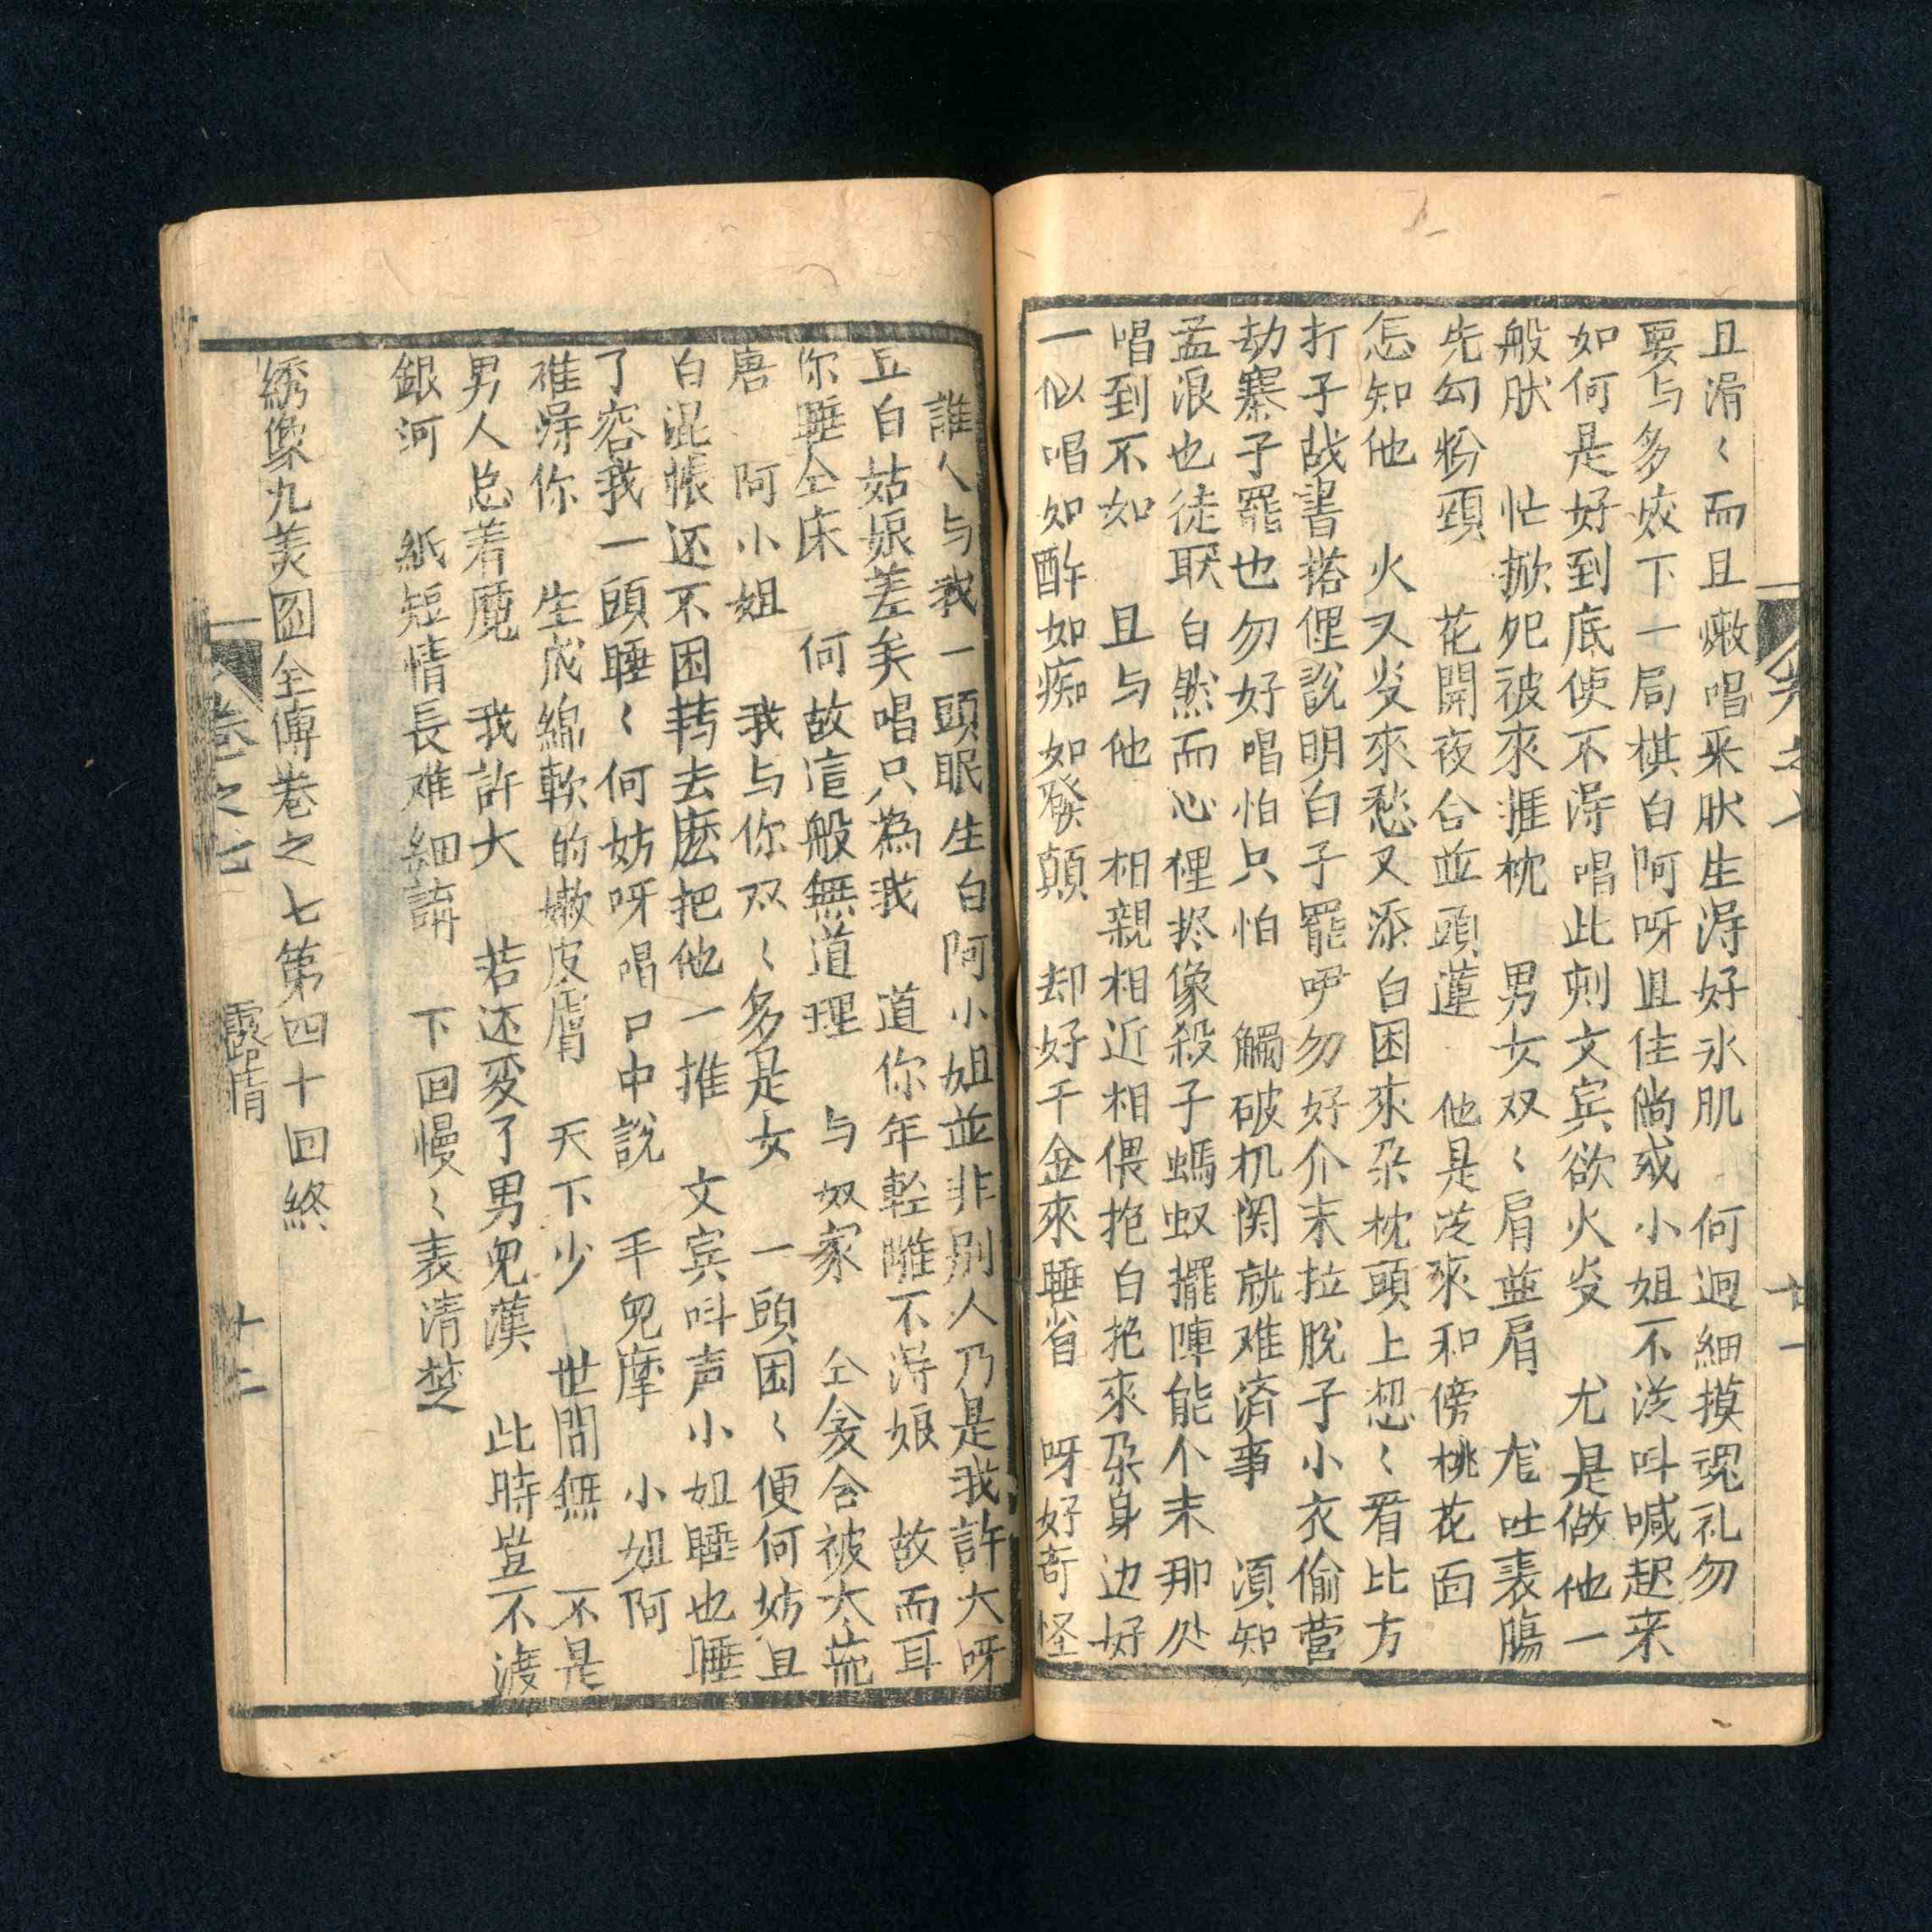 且滑〻而且嫩唱采肰生淂好氷肌　何迴細摸覌礼勿
要与多姣下一局棋白阿呀且住倘或小姐不从呌喊起来
如何是好到底使不淂唱此刻文宾欲火炎　尤是做他一
般肰　忙掀死被來捱枕　男女双〻肩並肩　尨吐衷腸
先勾粉頸　花開夜合並頭蓮　他是从來和傍桃花面
怎知他　火又炎來愁又添白困來朶枕頭上想〻看比方
打子战書搭俚說明白子罷吚勿好介末拉脫子小衣偷营
劫寨子罷也勿好唱怕只怕　觸破机関就难済事　湏知
孟浪也徒联自然而心俚搽像殺子螞蚁擺陣能个末那处
唱到不如　且与他　相親相近相偎抱白抱來朶身边好
一似唱如酔如痴如發顛　却好千金來睡省　呀好奇怪
誰人与我一頭眠生白阿小姐並非别人乃是我許大呀
五白姑娘差矣唱只為我　道你年輕雖不淂娘　故而耳
你睡仝床　何故這般無道理　与奴家　仝衾合被太荒
唐　阿小姐　我与你双〻多是女　一頭困〻便何妨且
白混帳还不困轉去麽把他一推　文宾呌声小姐睡也睡
了容我一頭睡〻何妨呀唱口中說　手兒摩　小姐阿
难淂你　生成綿軟的嫩皮膚　天下少　世間無　不是
男人总着魔　我許大　若还变了男兒漢　此時豈不渡
銀河　紙短情長难細講　下回慢〻表清楚
綉像九美圖全傳卷之七第四十回終
卷之七　露情　十二